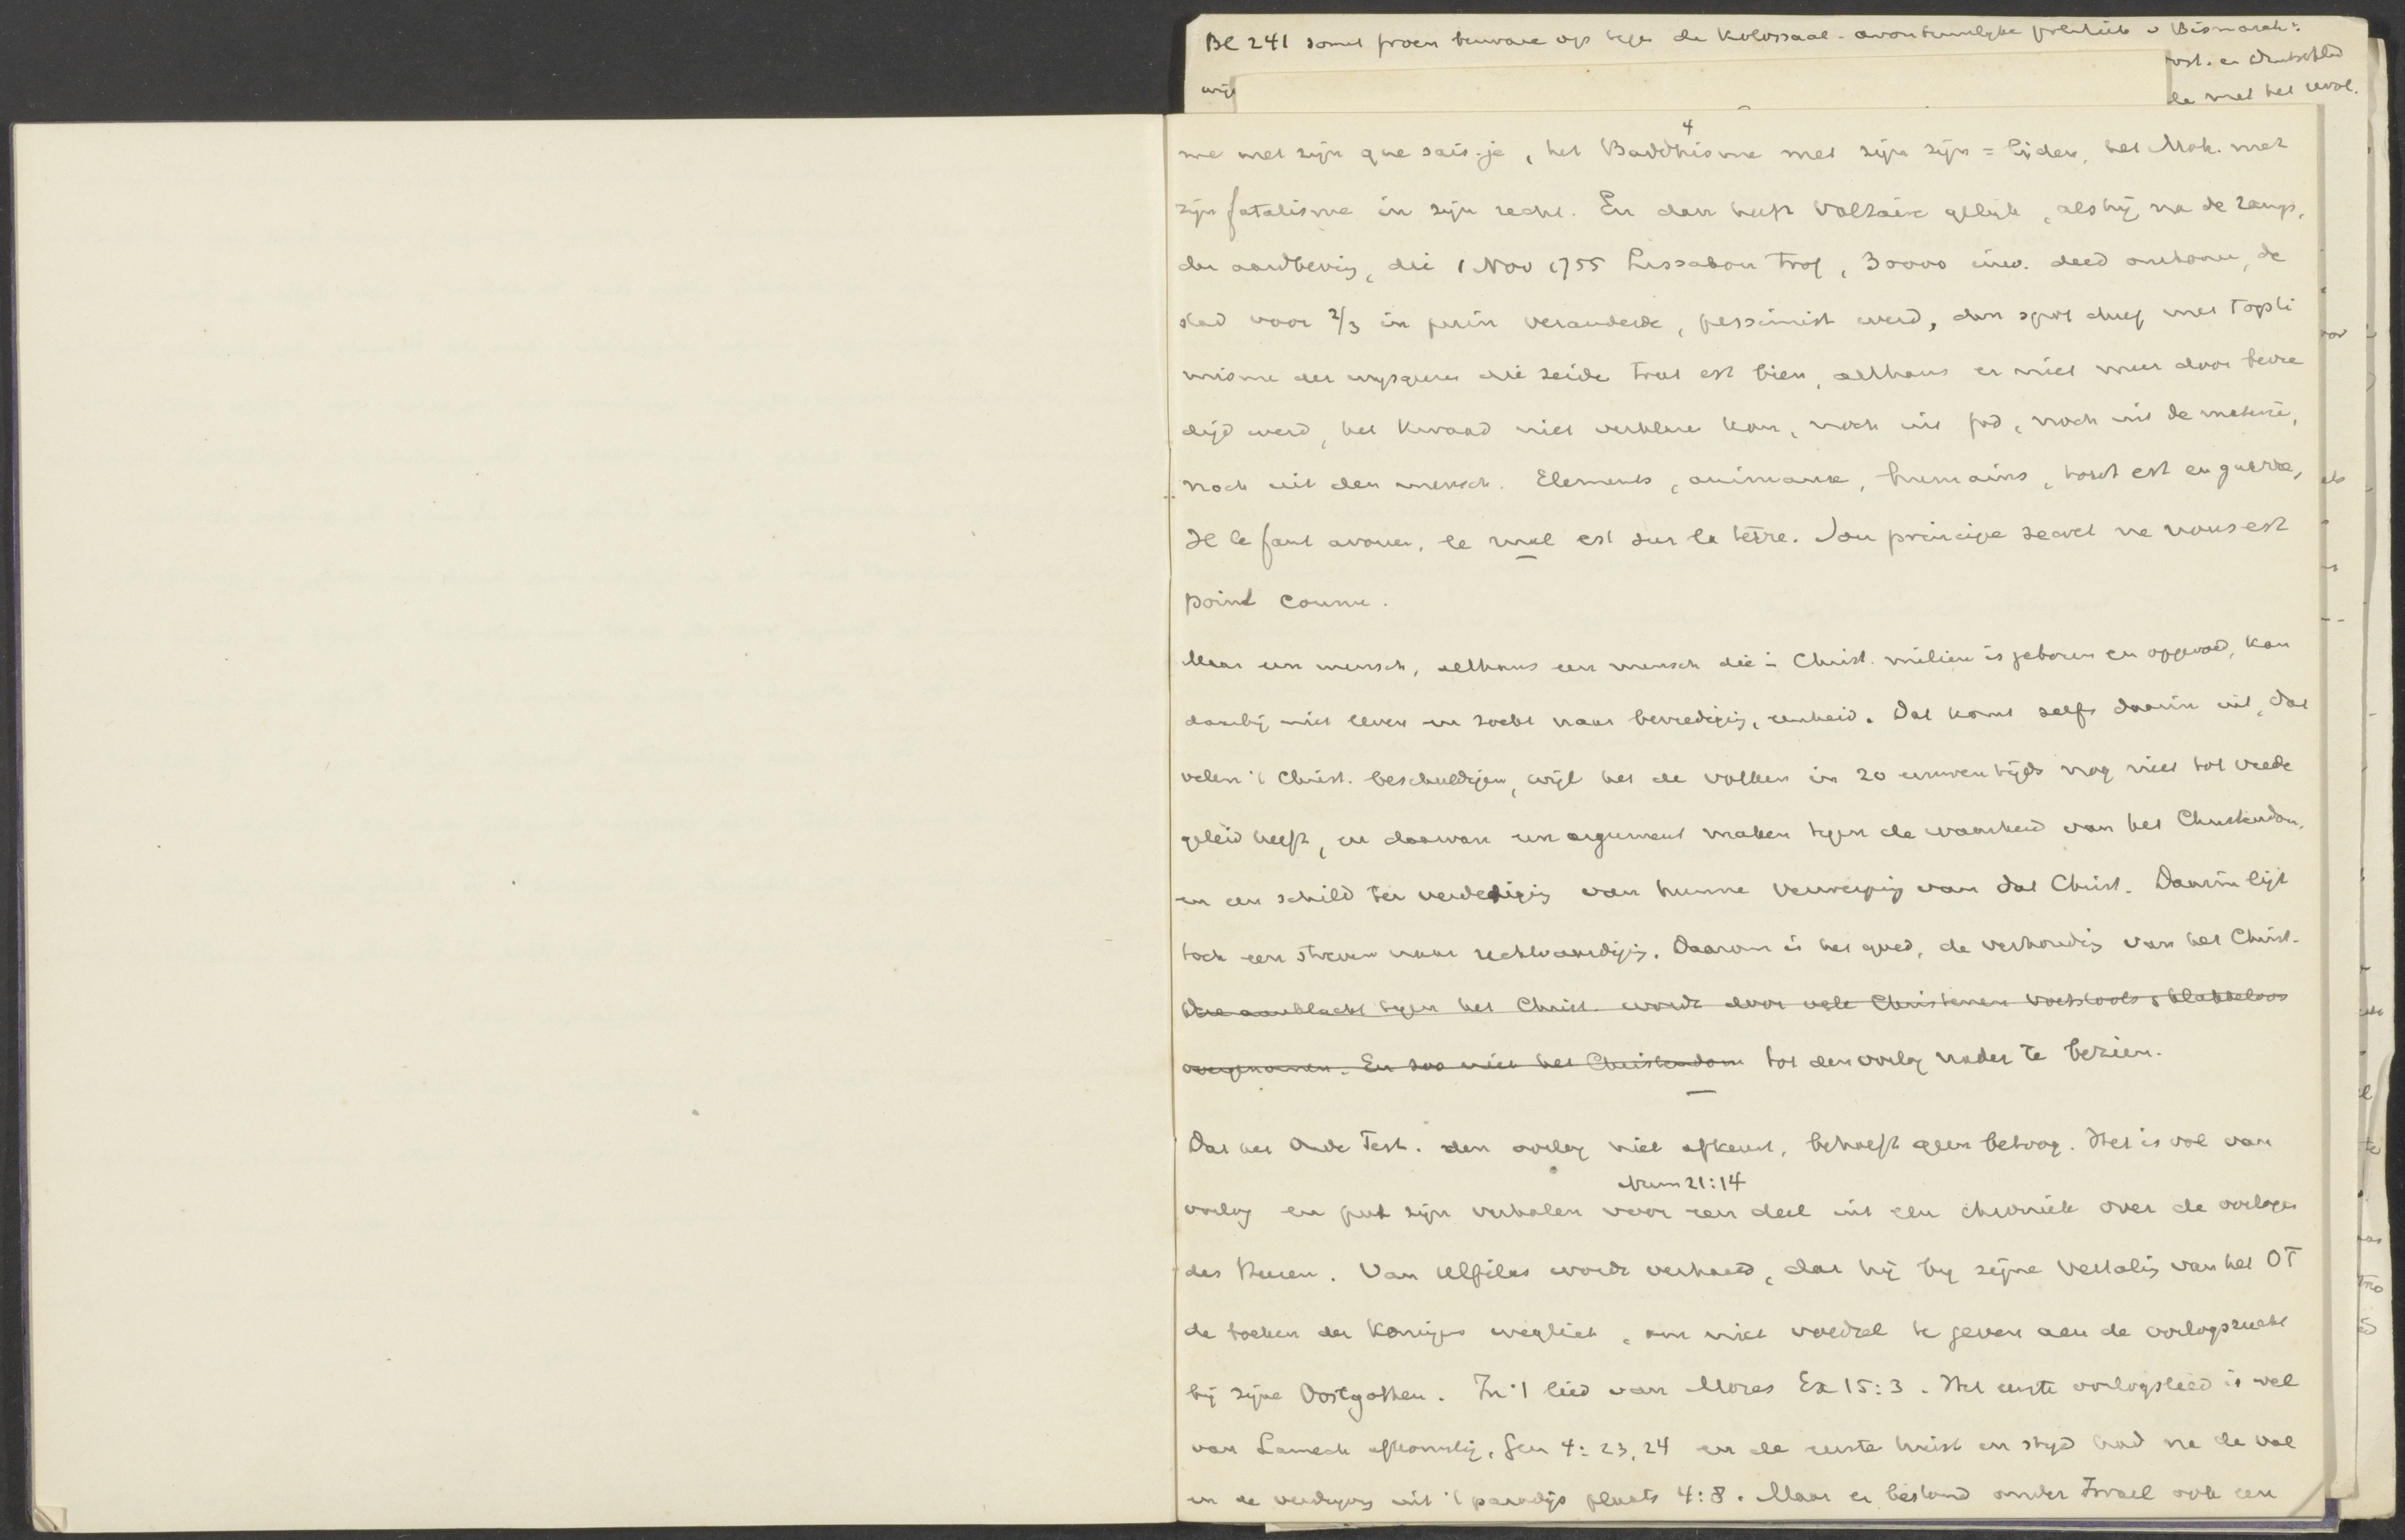 Bl 241 somt froen bezware op tege de Kolossaal-avontuurlyke politiek v Bismarck:
oost. en Duitschld
wijl
de met het revol.
4
me met zijn que sais-je, het Buddhisme met zijn zijn = lijden, het Moh. met
zijn fatalisme in zijn recht. En dan heeft Voltaire gelijk, als hij na de ramp,
der aardbeving, die 1 Nov 1755 Lissabon trof, 30000 inw. deed omkomen, de
stad voor 2/3 in puin veranderde, pessimist werd, den spot dreef met 't opti
misme der wysgeeren die zeide tout est bien, althans er niet meer door bevre
digd werd, het kwaad niet verklare kon, noch uit god, noch uit de materie,
noch uit den mensch. Elements, animaux, humains, tout est en guerre,
Il le faut avouer, le mal est sur la terre. Son principe secret ne nous est
point connu.
Maar een mensch, althans een mensch die in Christ. milieu is geboren en opgevoed, kan
daarbij niet leven en zoekt naar bevrediging, eenheid. Dat komt zelfs daarin uit, dat
velen 't Christ. beschuldigen, wijl het de volken in 20 eeuwen tijds nog niet tot vrede
geleid heeft, en daarvan een argument maken tegen de waarheid van het Christendom,
en een schild ter verdediging van hunne verwerping van dat Christ. Daarin ligt
toch een streven naar rechtvaardiging. Daarom is het goed, de verhouding van het Christ.
Die aanklacht tegen het Christ. wordt door vele Christenen voetstoots & klakkeloos
overgenomen. En zoo niet het Christendom tot den oorlog nader te bezien.
—
Dat het Oude Test. den oorlog niet afkeurt, behoeft geen betoog. Het is vol van
Num 21:14
oorlog en put zijn verhalen voor een deel uit een chroniek over de oorlogen
des Heeren. Van Ulfilas wordt verhaald, dat hij by zijne vertaling van het OT
de boeken der Koningen wegliet, om niet voedsel te geven aen de oorlogszucht
bij zijne Oostgothen. In 't lied van Mozes Ex 15:3. Het eerste oorlogslied is wel
van Lamech afkomstig, Gen 4:23,24 en de eerste twist en strijd had na de val
en de verdrijving uit 't paradijs plaats 4:8. Maar er bestond onder Israel ook een